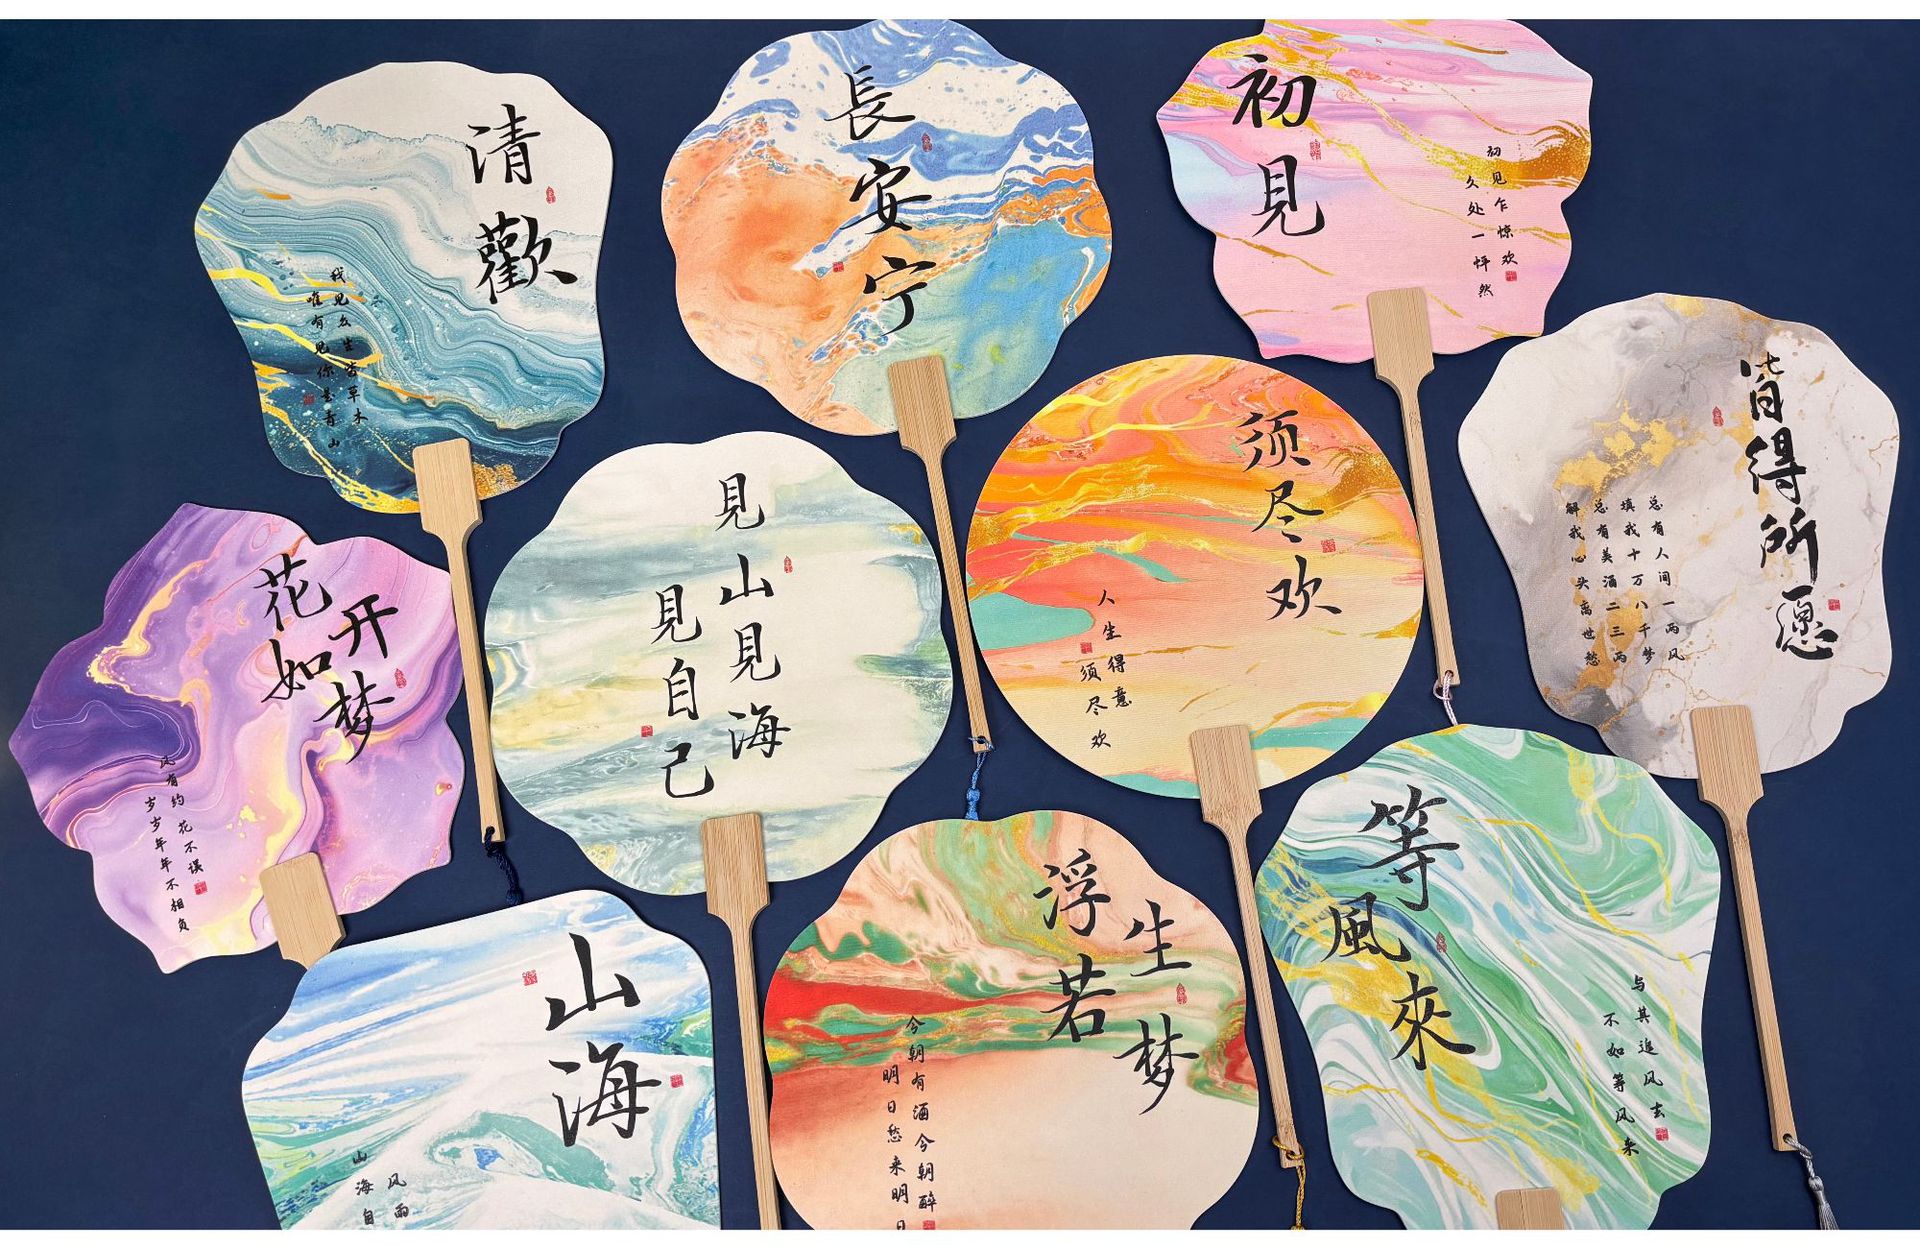 清歡
我见众生皆草木
唯有见你是青山
長安宁
初見
初见乍惊欢
久处一怦然
皆得所愿
总有人间一两风
填我十万八千梦
总有美酒二三两
解我心头离世愁
花开如梦
风有约花不误
岁岁年年不相负
見山見海
見自己
须尽欢
人生得意
须尽欢
山海
风雨
山海自
浮生若梦
今朝有酒今朝醉
明日愁来明日
等風來
与其追风去
不如等风来